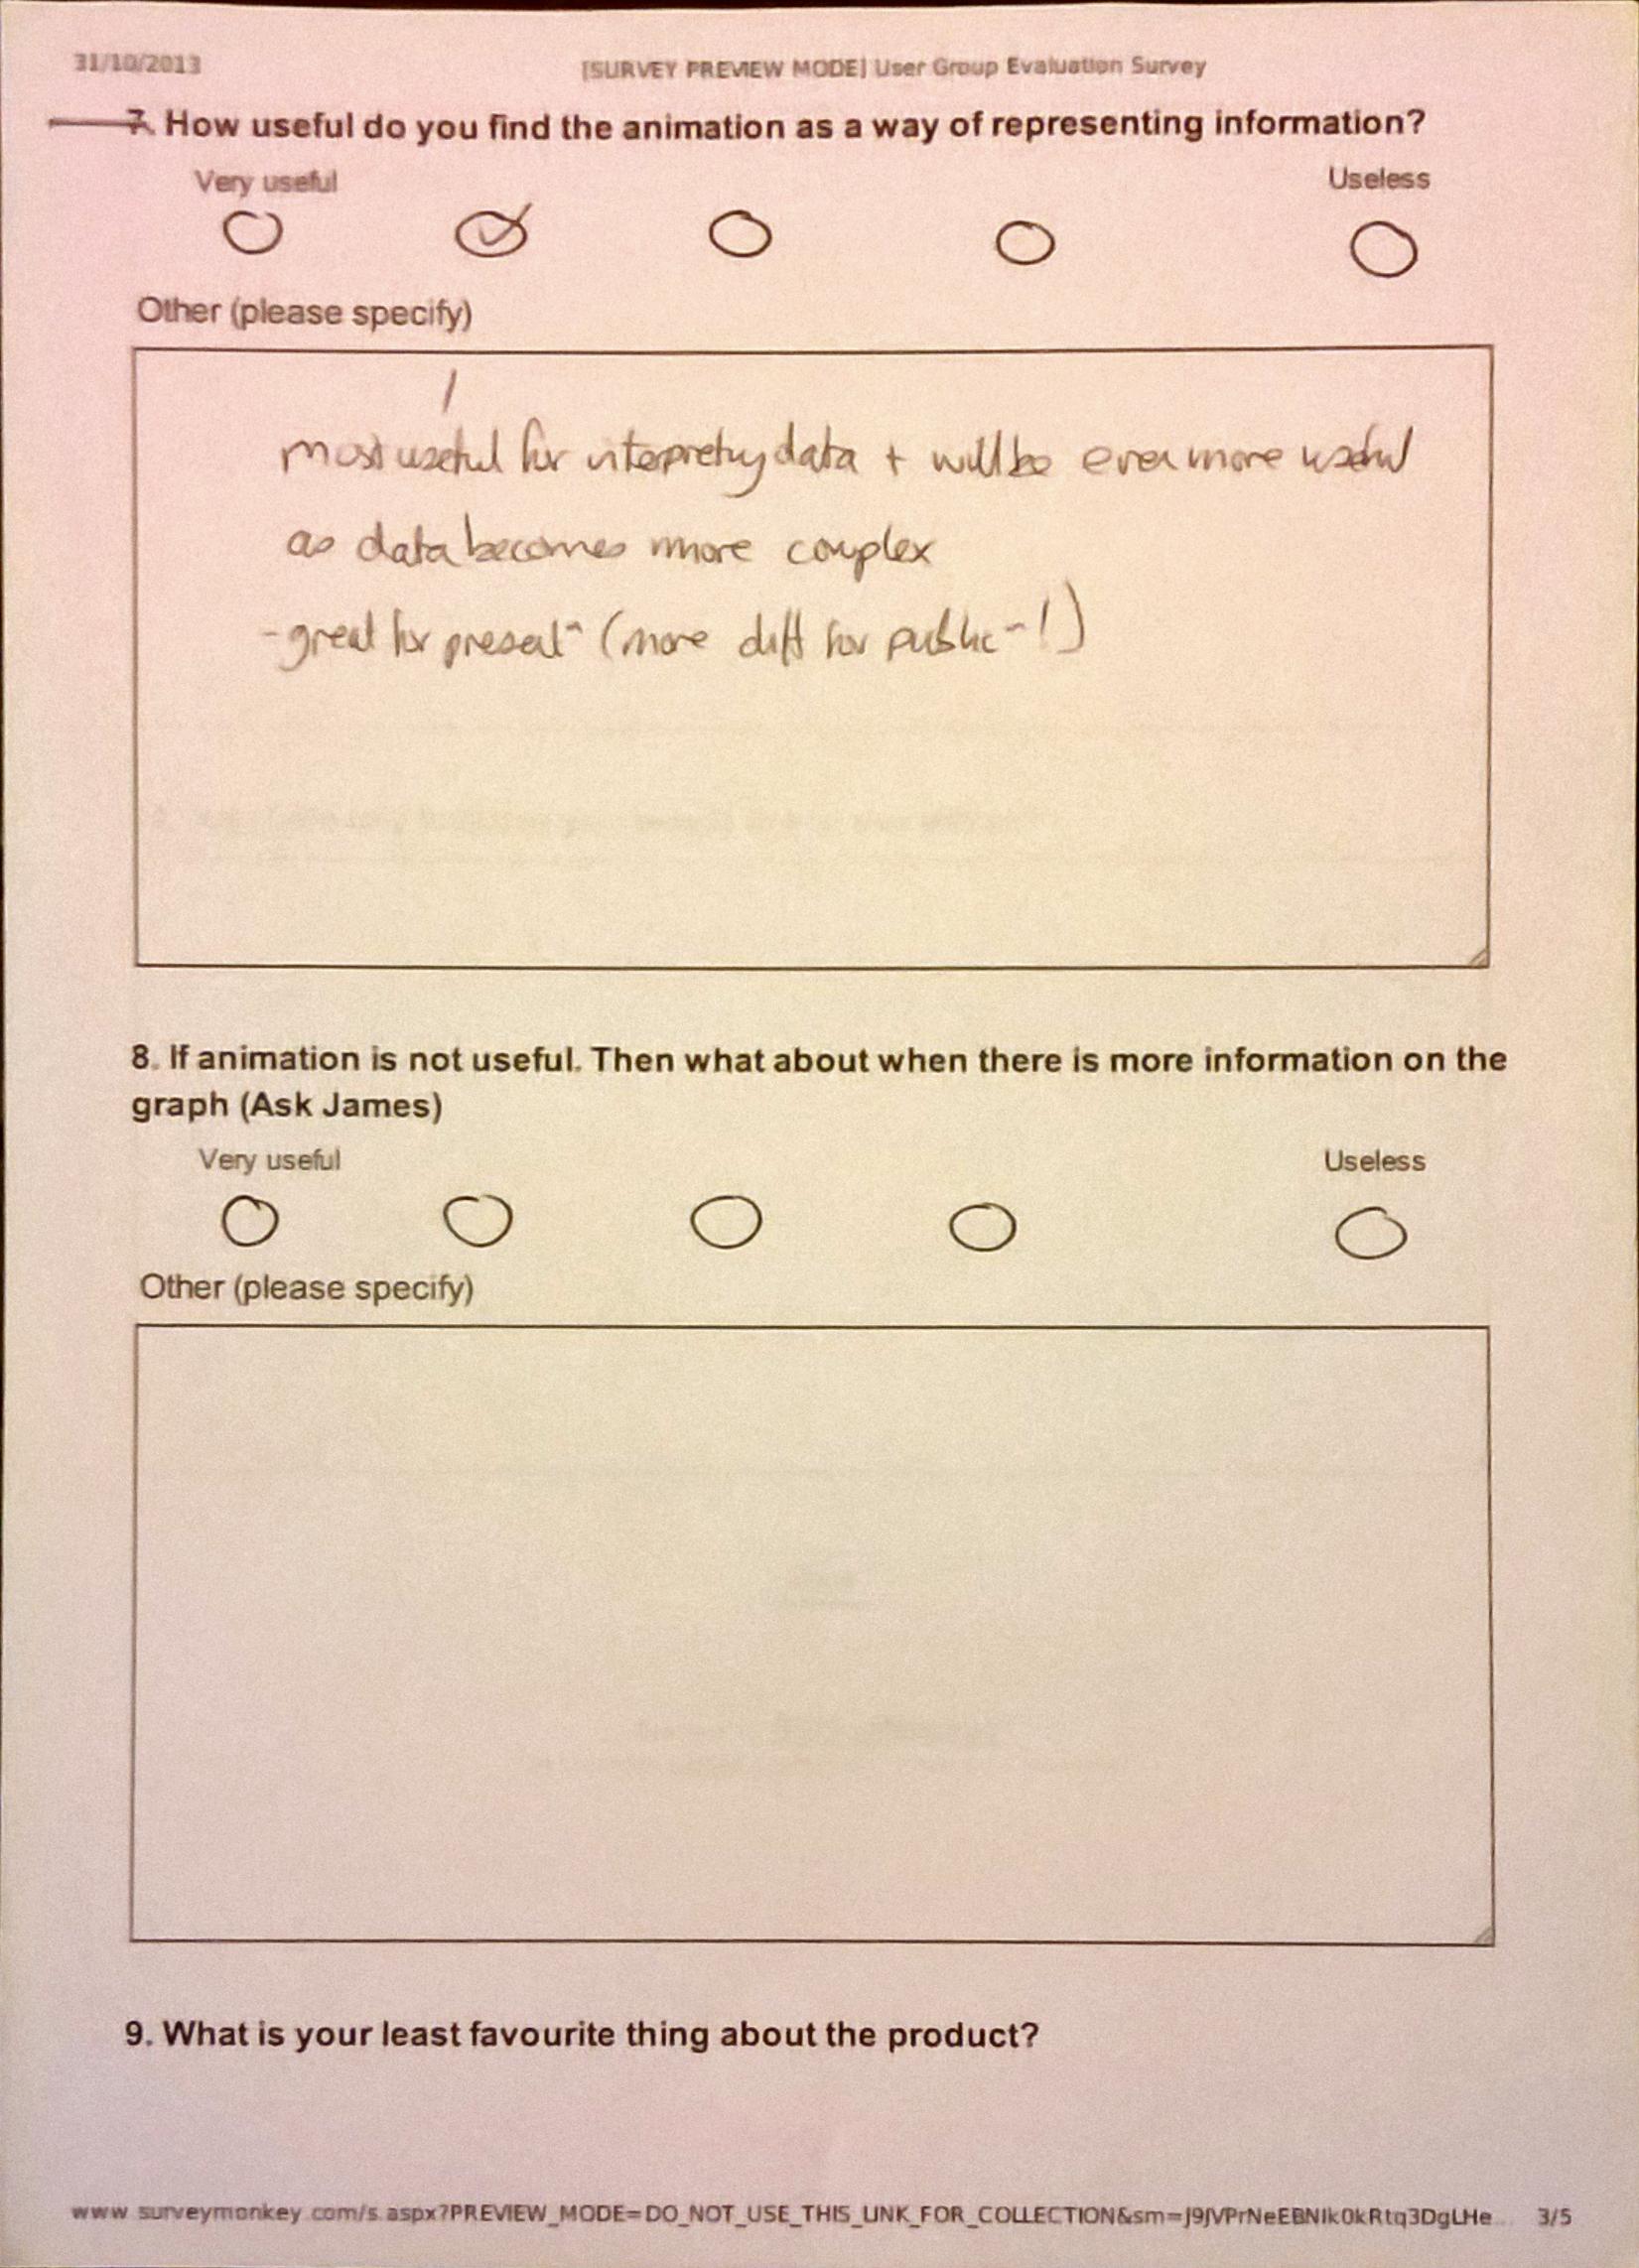 31/10/2013 [SURVEY PREVIEW MODE] User Group Evaluation Survey
7. How useful do you find the animation as a way of representing information?
Very useful Useless
Other (please specify)
most useful for interpreting data + will be even more useful
as data becomes more complex
- great for present⁻ (more diff for public⁻!)
8. If animation is not useful. Then what about when there is more information on the
graph (Ask James)
Very useful Useless
Other (please specify)
9. What is your least favourite thing about the product?
www.surveymonkey.com/s.aspx?PREVIEW_MODE=DO_NOT_USE_THIS_LINK_FOR_COLLECTION&sm=J9JVPrNeEBNIk0kRtq3DgLHe... 3/5